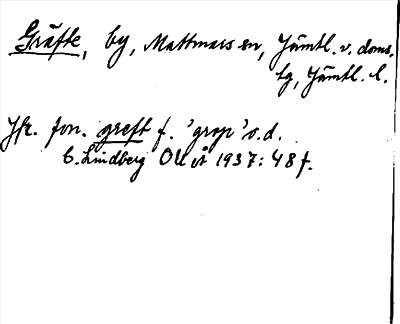 Gräfte, by, Mattmars sn, Jämtl. v. doms.
tg, Jämtl. l.
Jfr. fvn. greft f. 'grop' o.d.
C. Lindberg OUÅ 1937: 48 f.